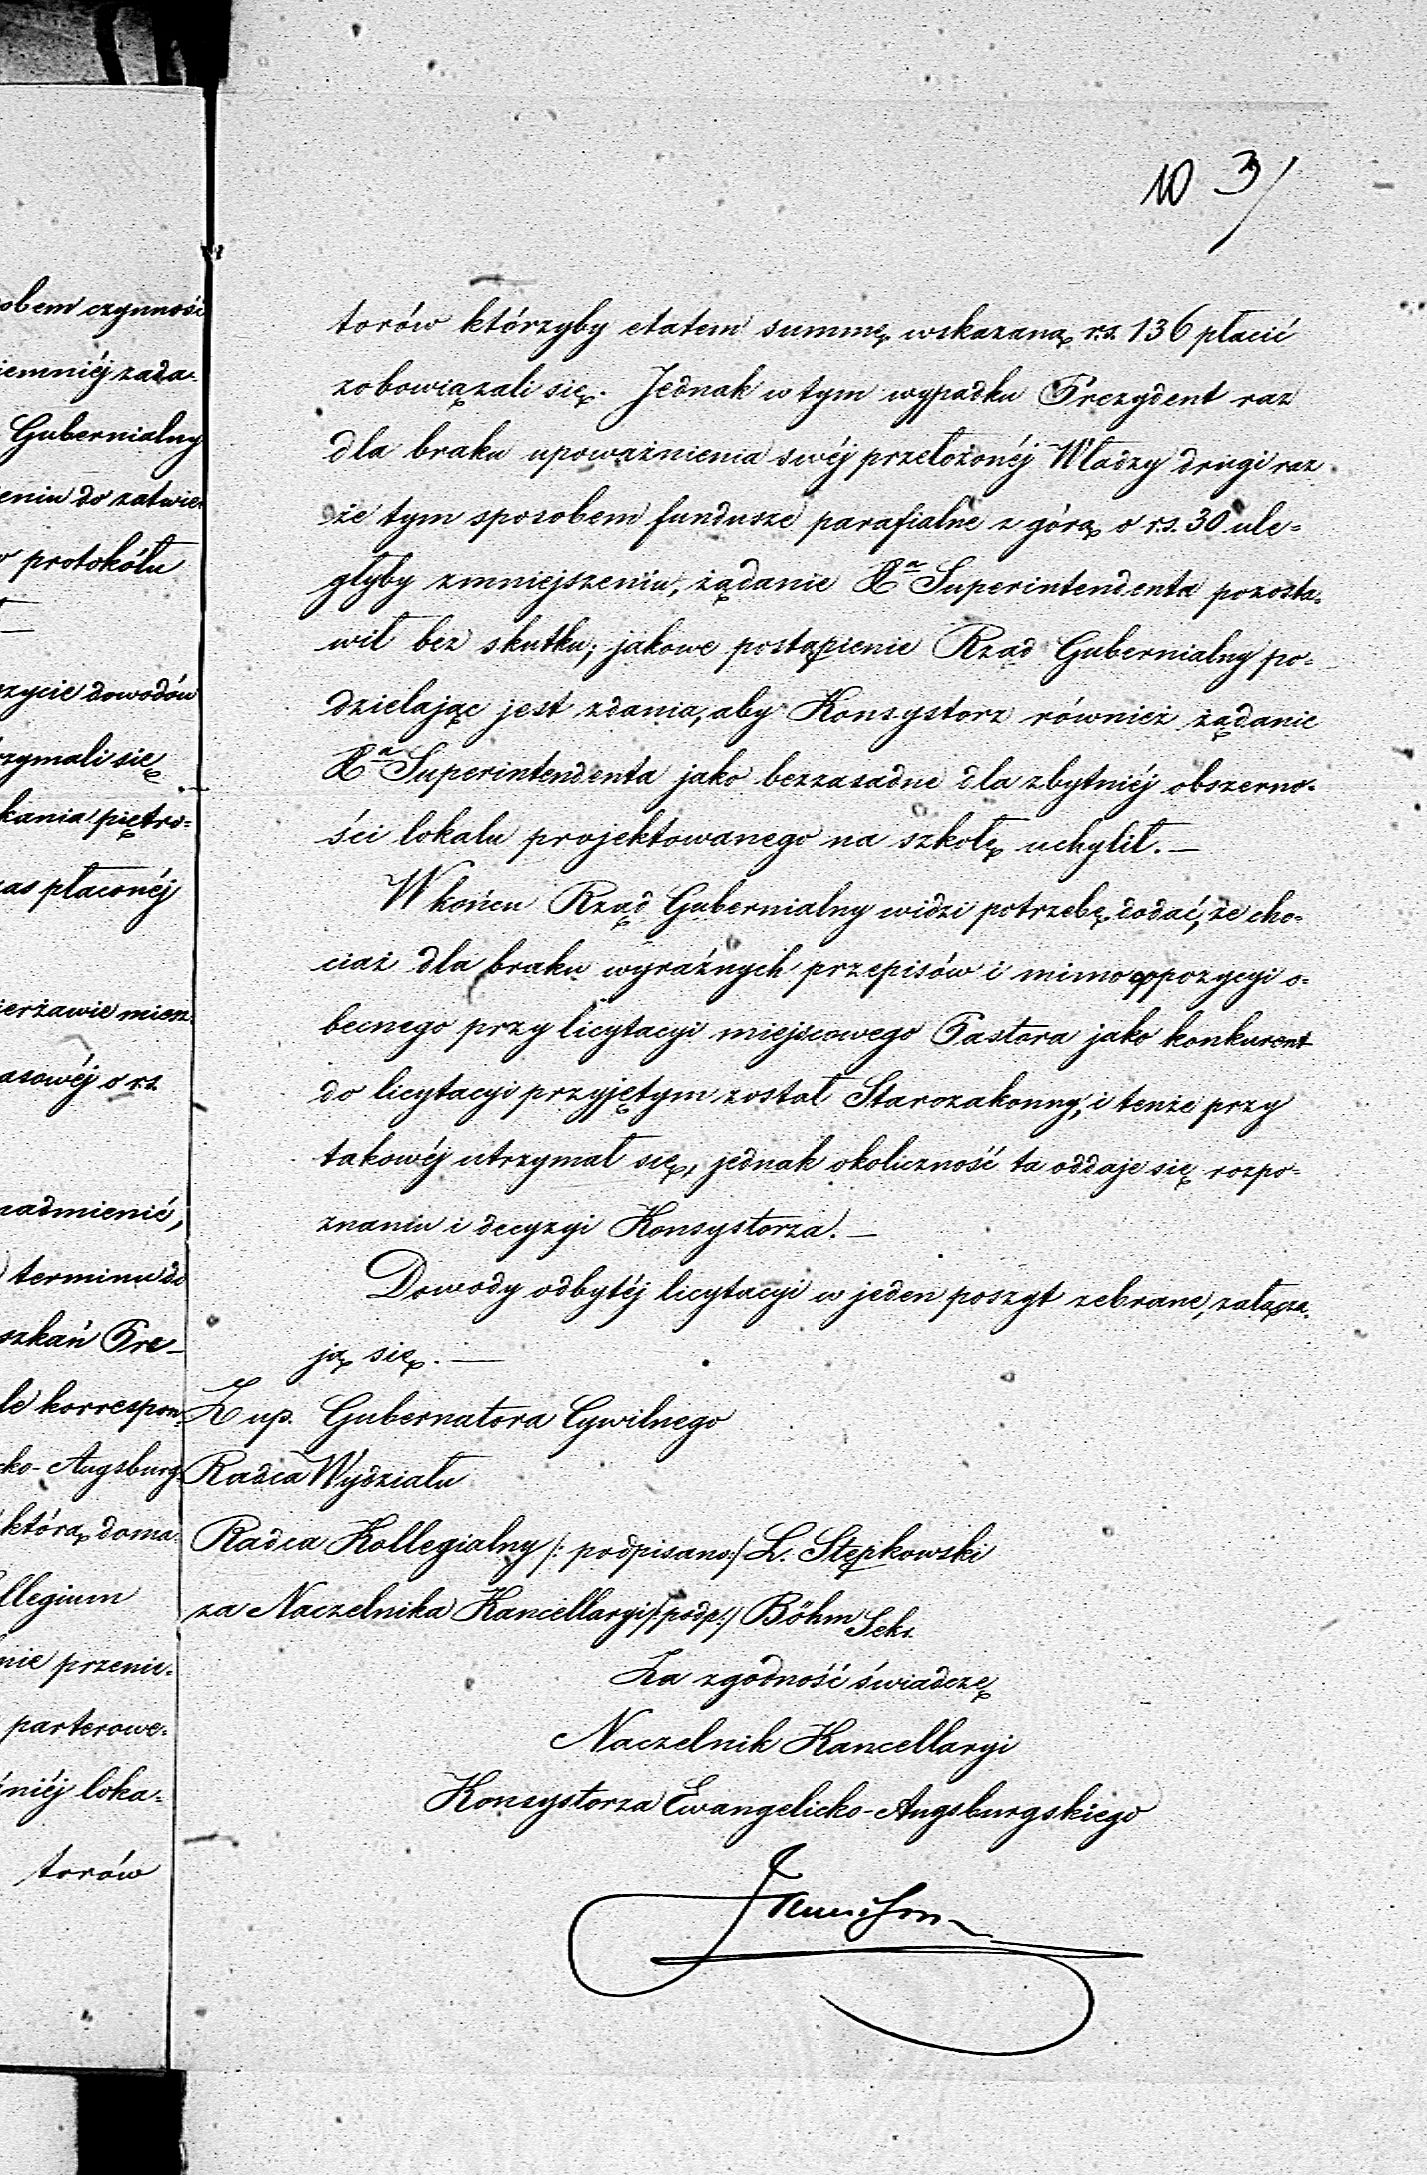 10 3/
obem czynności
iemniéj zada-
Gubernialny
eniu do zatwier-
protokółu
zycie dowodów
rzymali się
kania piętro-
as płaconéj
ierżawie miesz-
asowéj o rs.
nadmienić,
terminu do
szkań Pre-
le korrespon-
cko-Augsburg-
którą doma-
llegium
nie przenie-
parterowe-
niéj loka-
torów
torów którzyby etatem summę wskazaną rs. 136 płacić
zobowiązali się. Jednak w tym wypadku Prezydent raz
dla braku upoważnienia swéj przełożonéj Władzy drugi raz
że tym sposobem fundusze parafialne z górą o rs. 30 ule-
głyby zmniejszeniu, żądanie Xa Superintendenta pozosta-
wił bez skutku; jakowe postąpienie Rząd Gubernialny po-
dzielając jest zdania, aby Konsystorz również żądanie
Xa Superintendenta jako bezzasadne dla zbytniéj obszerno-
ści lokalu projektowanego na szkołę uchylił. —
W końcu Rząd Gubernialny widzi potrzebę dodać, że cho-
ciaż dla braku wyraźnych przepisów i mimo oppozycyi o-
becnego przy licytacyi miejscowego Pastora jako konkurent
do licytacyi przyjętym został Starozakonny, i tenże przy
takowéj utrzymał się, jednak okoliczność ta oddaje się rozpo-
znaniu i decyzyi Konsystorza. —
Dowody odbytéj licytacyi w jeden poszyt zebrane, załącza-
ją się. —
Z up. Gubernatora Cywilnego
Radca Wydziału
Radca Kollegialny /: podpisano:/ L. Stępkowski
za Naczelnika Kancellaryi /:podp:/ Böhm Sekr.
Za zgodność świadczę
Naczelnik Kancellaryi
Konsystorza Ewangelicko-Augsburgskiego